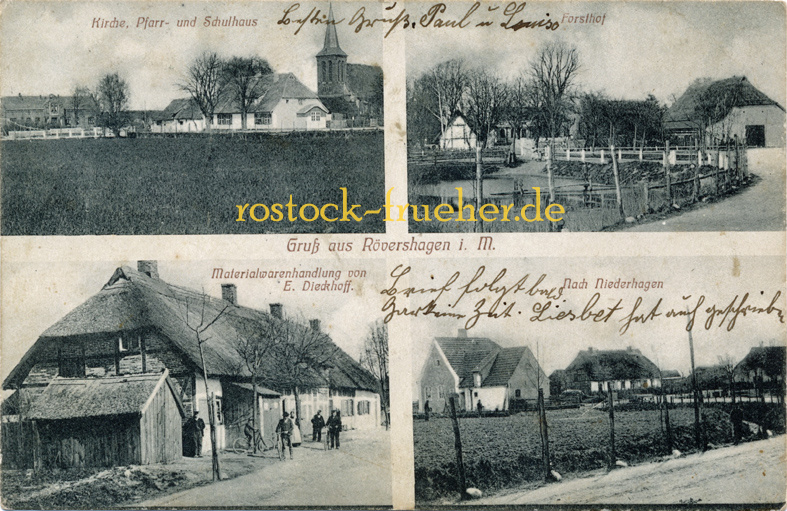 Kirche, Pfarr- und Schulhaus
Besten Gruß. Paul u Louise
Forsthof
rostock-frueher.de
Gruß aus Rövershagen i. M.
Materialwarenhandlung von
E. Dieckhoff.
Brief folgt bes
Gar keine Zeit. Liesbet hat auch geschrieben
Nach Niederhagen